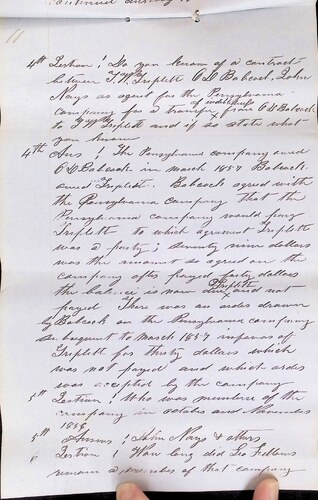 11
4th Testion ! Do you know of a contract
between T. W. Triplett O D Babcock John
Nays as agent for the Pensylvania
company for a transfer of indebtness from O D Babcock
to T W Triplett and if so state what
you know
4th Ans ! The Pensylvania company owed
O D Babcock in march 1857 Babcock
owed Triplett. Babcock agreed with
the Pensylvania company that the
Pensylvania company would pay
Triplett to which agreement Triplett
was a party; seventy nine dollars
was the amount so agreed on the
company after payed forty dollars
the balance is now due Triplett and not
payed There was an order drawn
by Babcock on the Pensylvania company
subsequent to March 1857 in favor of
Triplett for thirty dollars which
was not payed and which order
was accepted by the company
5th Testion ! Who was members of the
company in october and
1856
5th Answer ! John Nays & others
6 Testion ! How long did Geo Fellows
remain a member of that company